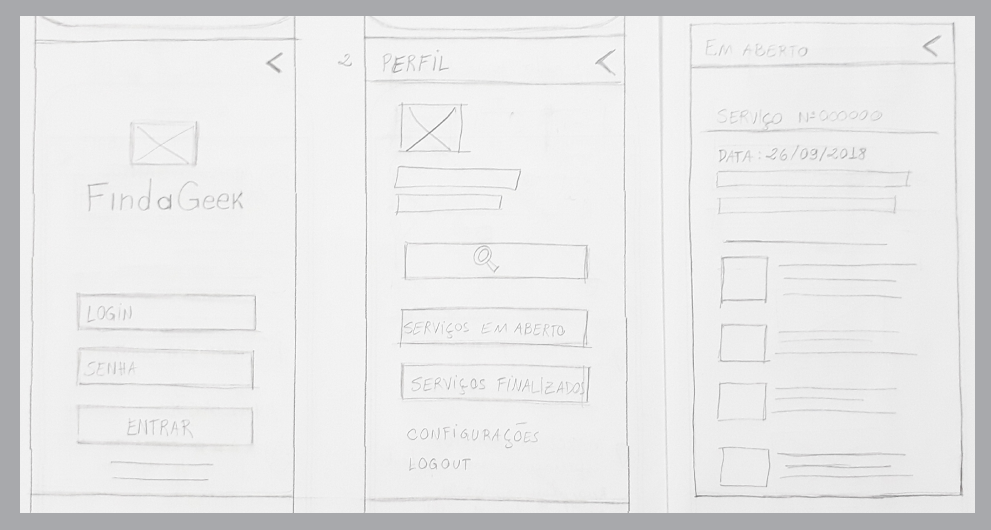 FindaGeek
LOGIN
SENHA
ENTRAR
2
PERFIL
SERVIÇOS EM ABERTO
SERVIÇOS FINALIZADOS
CONFIGURAÇÕES
LOGOUT
EM ABERTO
SERVIÇO Nº000000
DATA: 26/09/2018